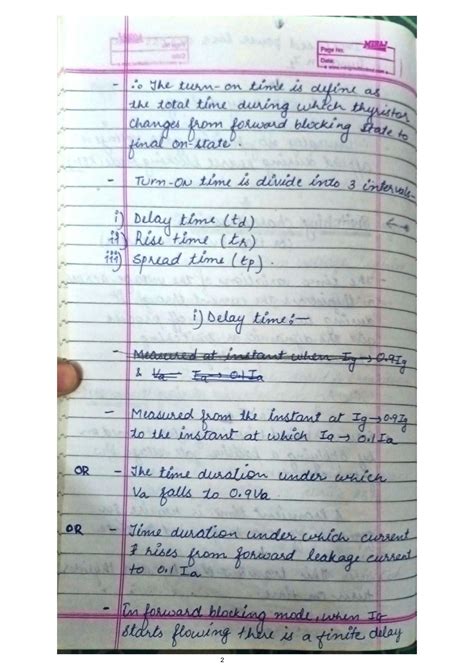 Page No.
Date:
- ∴ The turn-on time is define as
the total time during which thyristor
changes from forward blocking state to
final on-state.
- Turn-On time is divide into 3 intervals-
i) Delay time (td)
ii) Rise time (tr)
iii) Spread time (tp).
i) Delay time:-
- Measured at instant when Ig → 0.9Ig
& Va Ia → 0.1Ia
- Measured from the instant at Ig → 0.9Ig
to the instant at which Ia → 0.1Ia
OR - The time duration under which
Va falls to 0.9Va.
OR - Time duration under which current
rises from forward leakage current
to 0.1 Ia
- In forward blocking mode, when Ig
starts flowing there is a finite delay
2